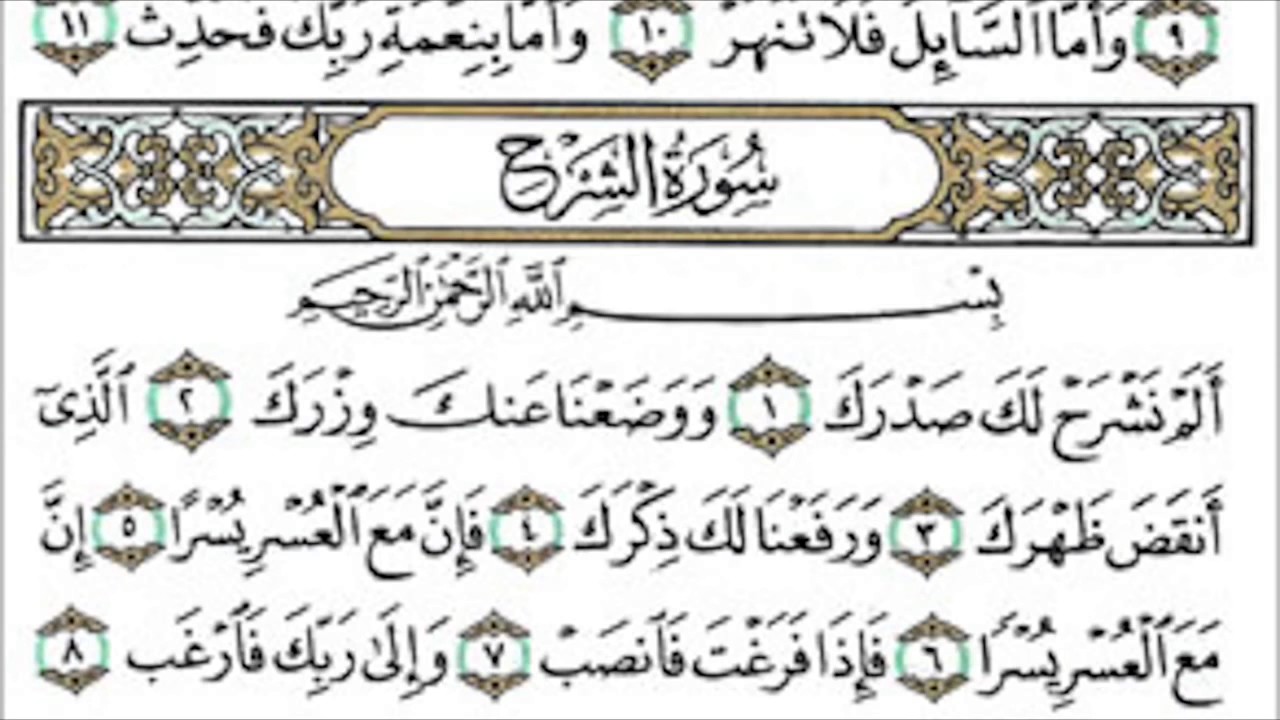 ٩ وَأَمَّا ٱلسَّآئِلَ فَلَا تَنْهَرْ ١٠ وَأَمَّا بِنِعْمَةِ رَبِّكَ فَحَدِّثْ ١١
سُورَةُ الشَّرْحِ
بِسْمِ ٱللَّهِ ٱلرَّحْمَٰنِ ٱلرَّحِيمِ
أَلَمْ نَشْرَحْ لَكَ صَدْرَكَ ١ وَوَضَعْنَا عَنكَ وِزْرَكَ ٢ ٱلَّذِىٓ
أَنقَضَ ظَهْرَكَ ٣ وَرَفَعْنَا لَكَ ذِكْرَكَ ٤ فَإِنَّ مَعَ ٱلْعُسْرِ يُسْرًا ٥ إِنَّ
مَعَ ٱلْعُسْرِ يُسْرًا ٦ فَإِذَا فَرَغْتَ فَٱنصَبْ ٧ وَإِلَىٰ رَبِّكَ فَٱرْغَب ٨